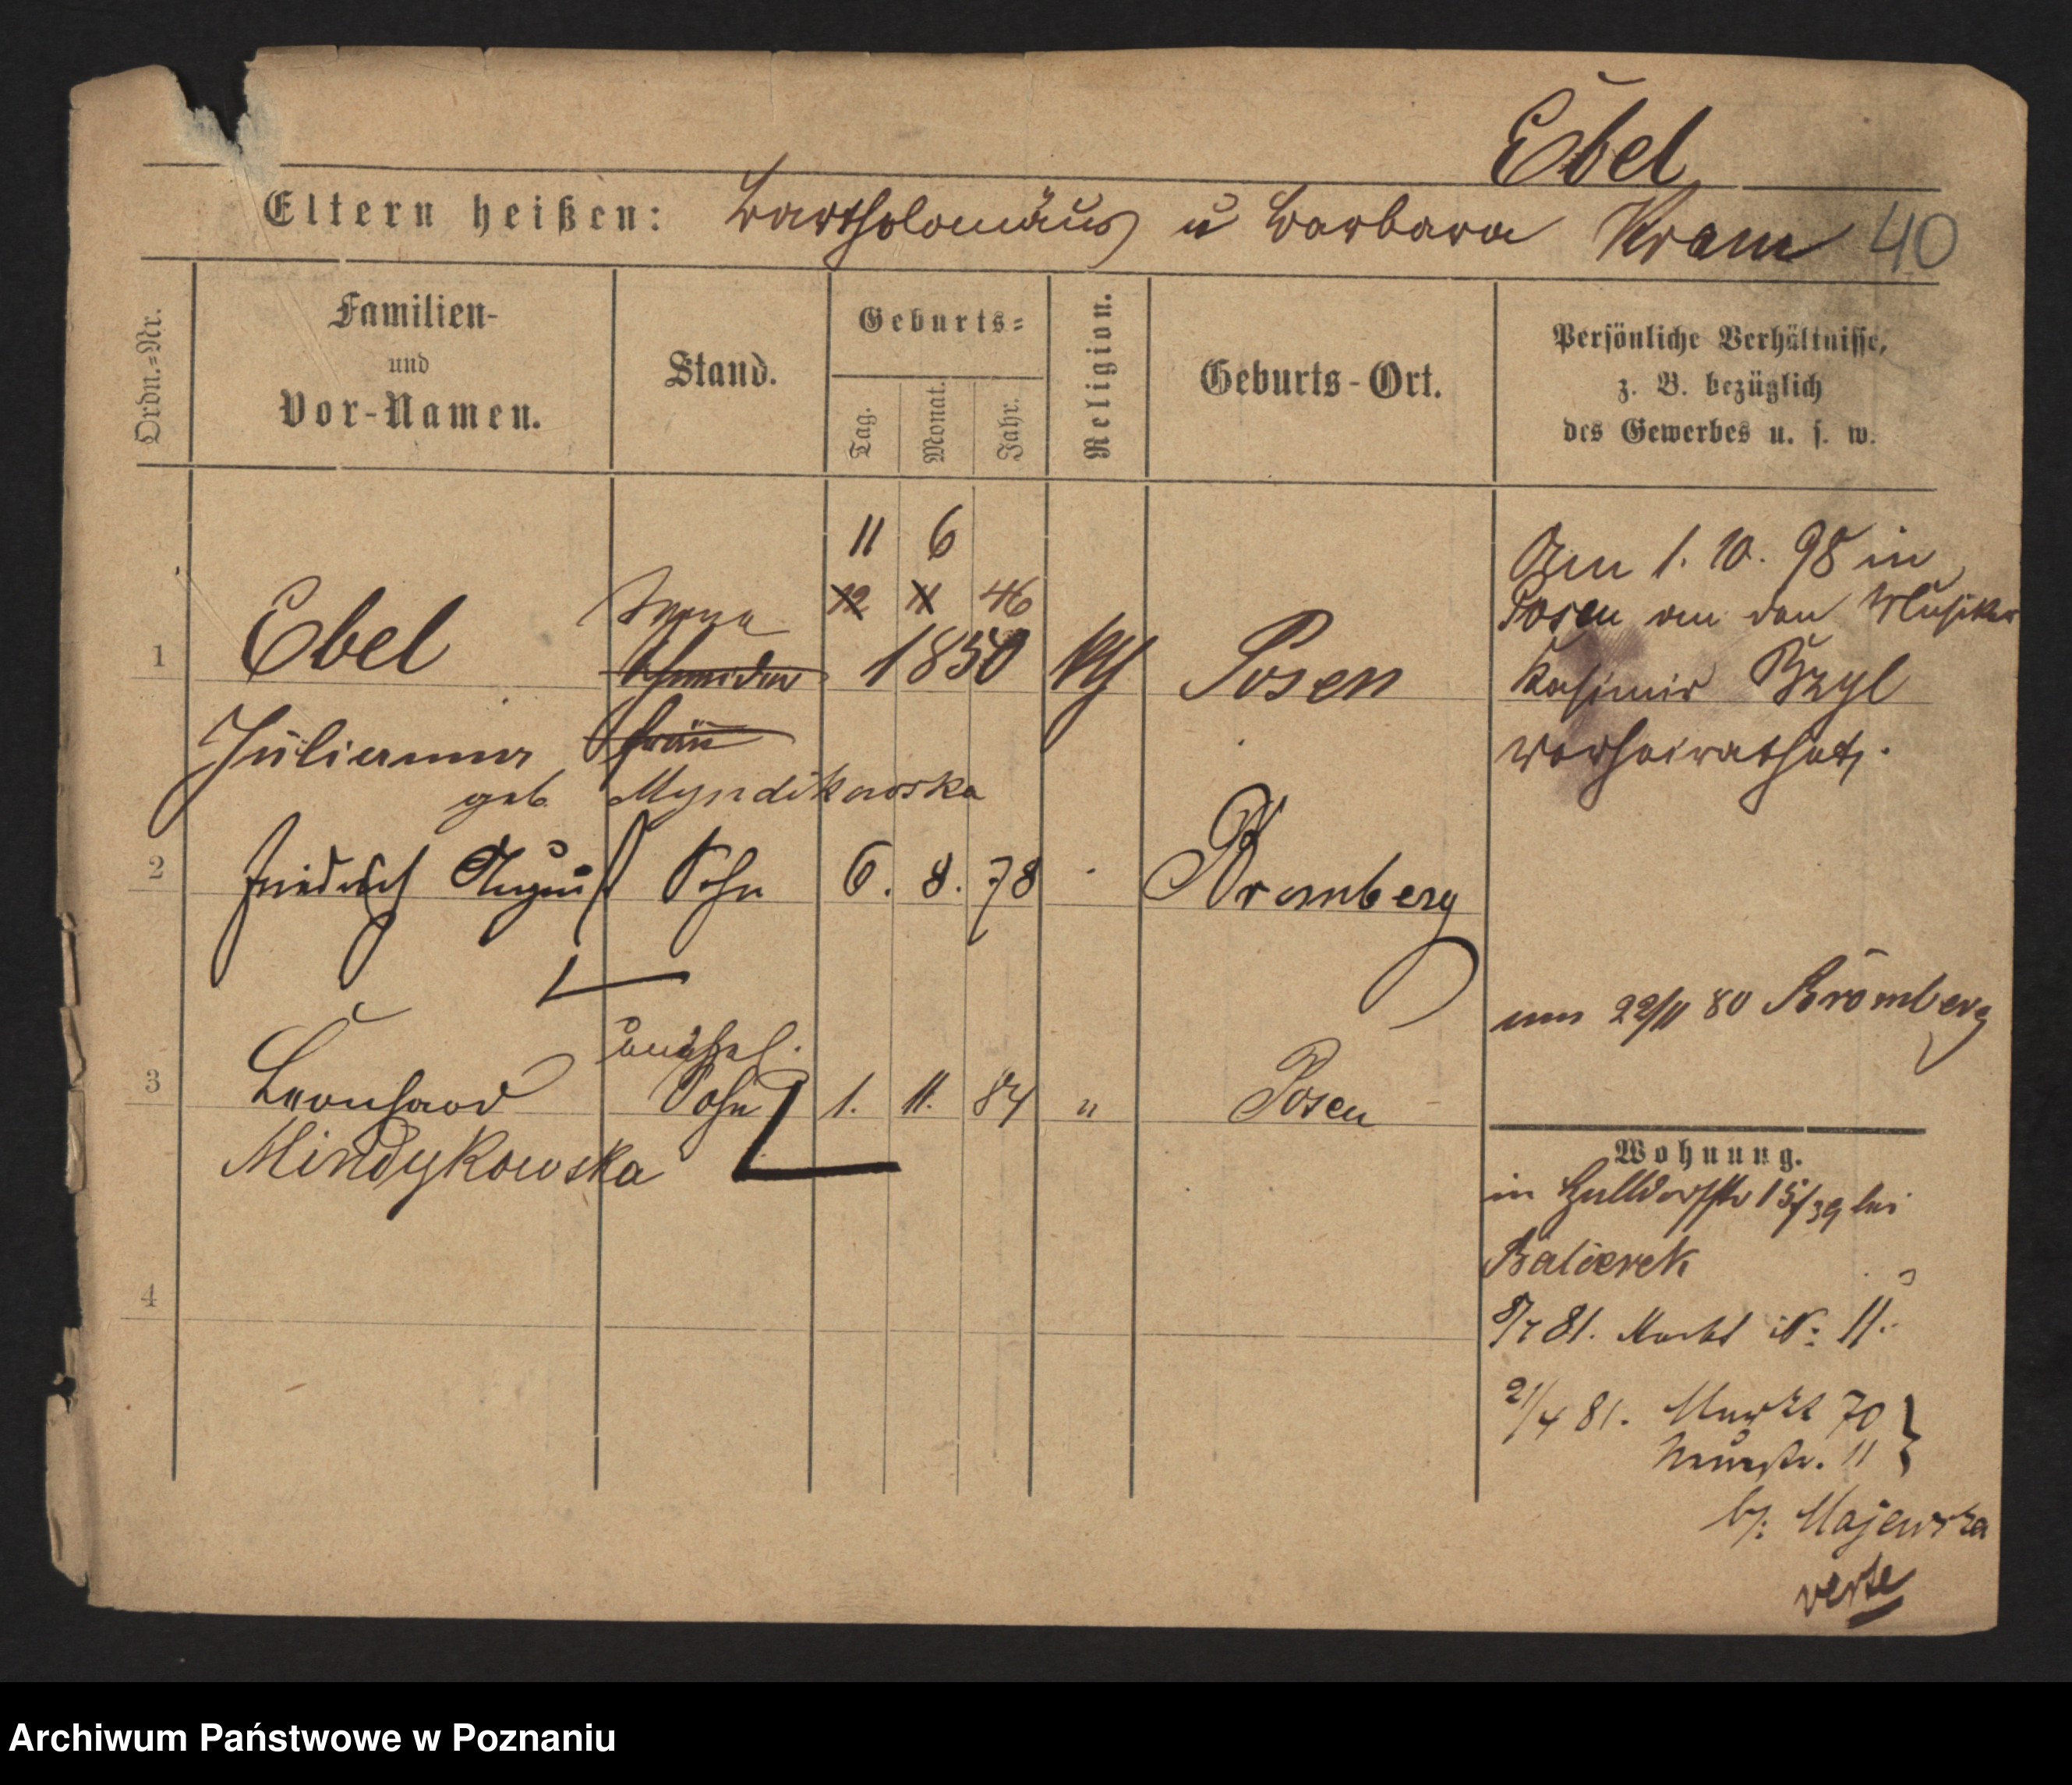 Ebel
Eltern heißen: Bartholomäus u Barbara Kram 40
Ordn.=Nr.
Familien-
und
Vor-Namen.
Stand.
Geburts=
Tag.
Monat.
Jahr.
Religion.
Geburts-Ort.
Persönliche Verhältnisse,
z. B. bezüglich
des Gewerbes u. s. w.
11 6
12 11 46
1 Ebel Schneider 1850 kth Posen
Julianna frau
geb Myndikowska
Am 1. 10. 98 in
Posen an den Musiker
Kasimir Bzyl
verheirathet.
2 Friedrich August Sohn 6. 8. 78 Bromberg
von 22/11 80 Bromberg
unehel.
3 Leonhard Sohn 1. 11. 84 " Posen
Mindykowska
Wohnung.
in 15/39 bei
Balcerek
4
8/7 81. Markt N: 11.
21/4 81. Markt 70
Neuestr. 11
b/: Majewska
verte
Archiwum Państwowe w Poznaniu